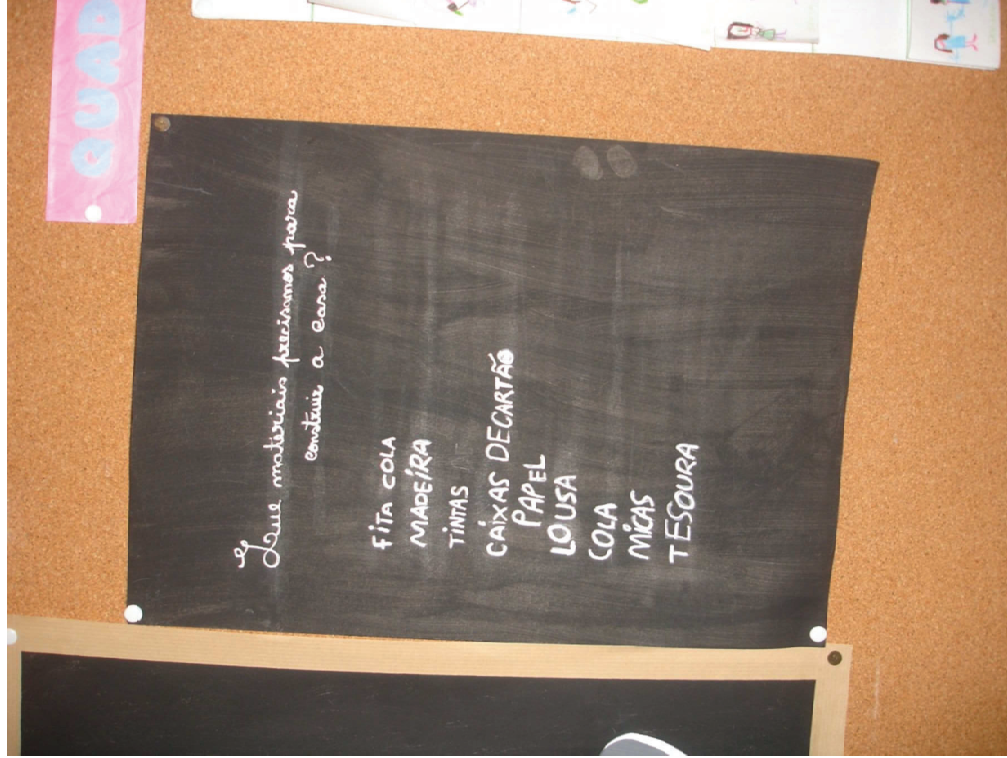 QUAD
Que materiais precisamos para
construir a casa?
FITA COLA
MADEÍRA
TINTAS
CAIXAS DECARTÃO
PAPEL
LOUSA
COLA
MICAS
TESOURA